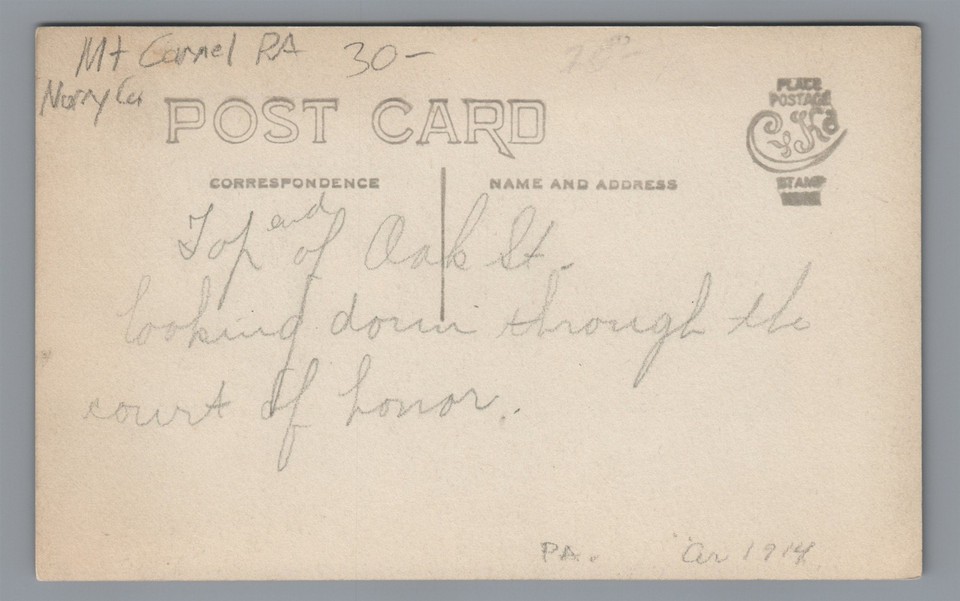 Mt Carmel PA 30-
Norry Co
POST CARD
PLACE
POSTAGE
CYKO
STAMP
HERE
CORRESPONDENCE NAME AND ADDRESS
Top end of Oak St.
looking down through the
court of honor.
PA. Cir 1914